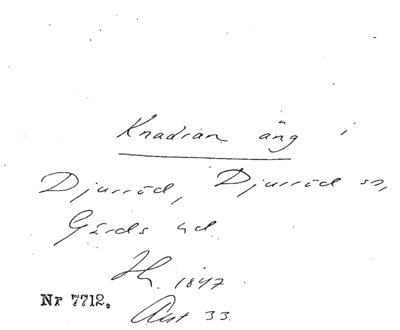 Knadran äng i
Djurröd, Djurröd sn,
Gärds hd.
H. 1847
Nr 7712.
Akt 33.